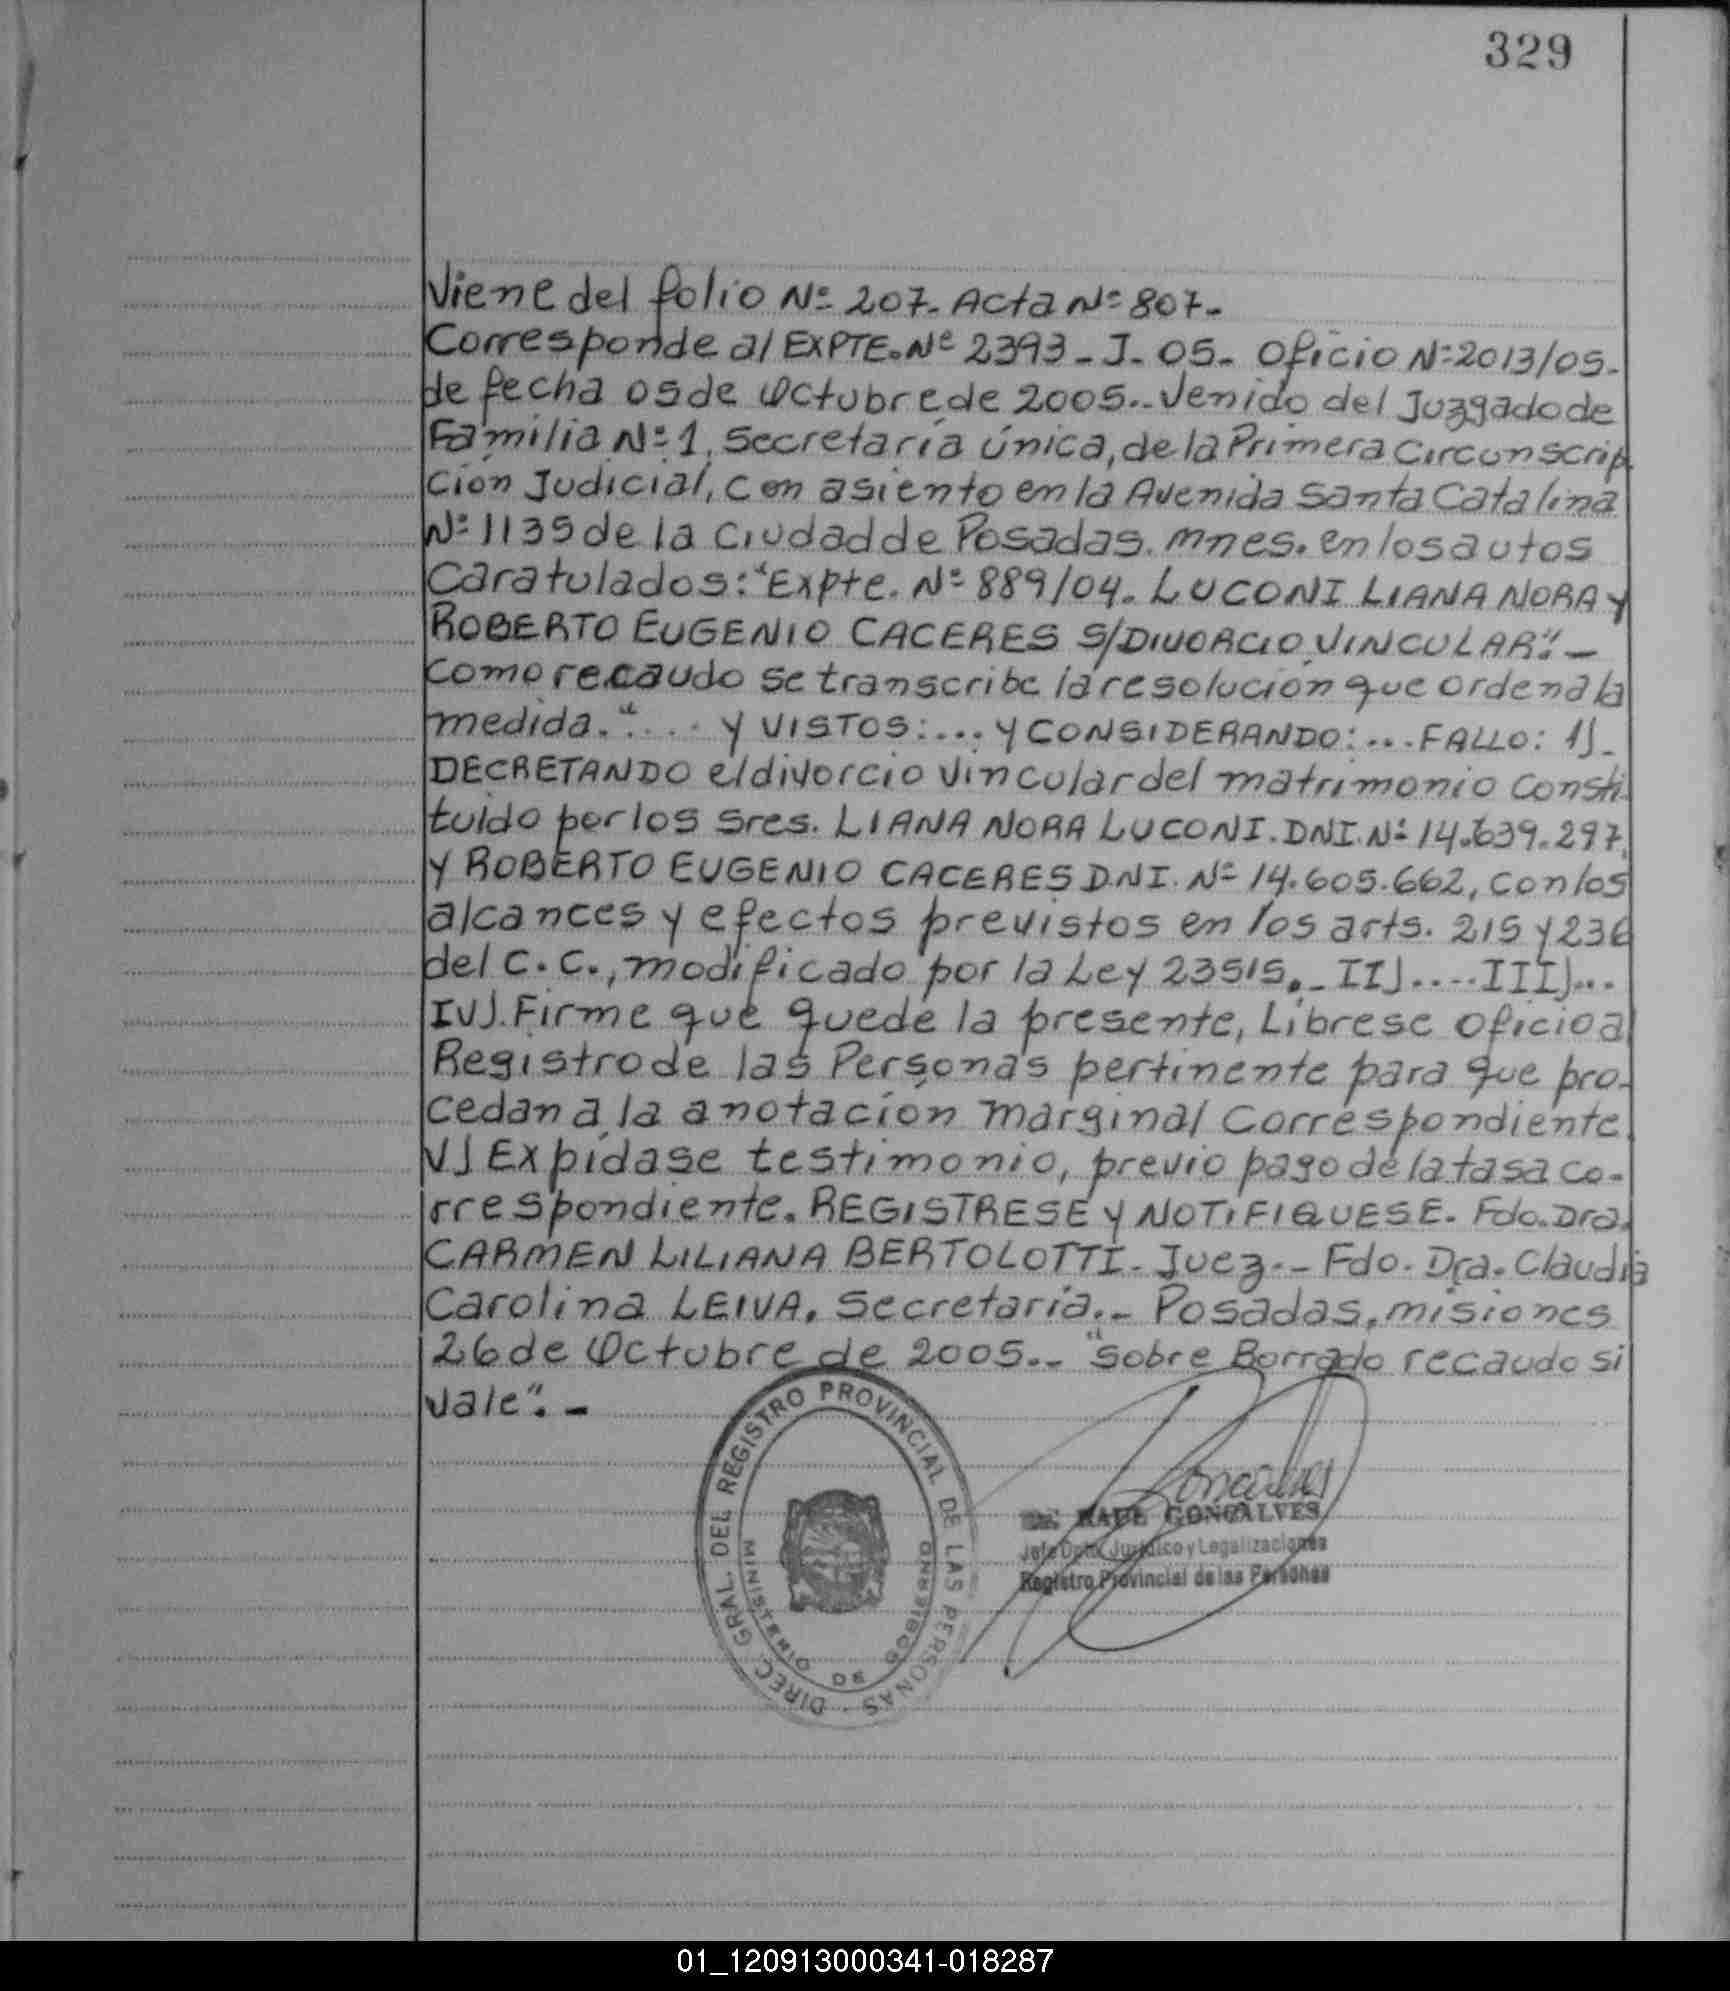 329
Viene del folio Nº 207. Acta Nº 807.
Corresponde al EXPTE. Nº 2393 - J - 05 - Oficio Nº 2013/05.
de fecha 05 de Octubre de 2005.. Venido del Juzgado de
Familia Nº 1, Secretaría única, de la Primera Circunscrip
ción Judicial, con asiento en la Avenida Santa Catalina
Nº 1135 de la Ciudad de Posadas. Mnes. en los autos
Caratulados: "Expte. Nº 889/04. LUCONI LIANA NORA Y
ROBERTO EUGENIO CACERES S/DIVORCIO VINCULAR". -
Como recaudo se transcribe la resolución que ordena la
medida. ".... Y VISTOS:... Y CONSIDERANDO:... FALLO: 1).
DECRETANDO el divorcio vincular del matrimonio consti
tuído por los Sres. LIANA NORA LUCONI. DNI. Nº 14.639.297.
Y ROBERTO EUGENIO CACERES D.N.I. Nº 14.605.662, con los
alcances y efectos previstos en los arts. 215 y 236
del C.C., modificado por la Ley 23515. - II).... III)...
IV). Firme que quede la presente, Líbrese oficio al
Registro de las Personas pertinente para que pro-
cedan a la anotación marginal correspondiente.
V) Expídase testimonio, previo pago de la tasa co-
rrespondiente. REGISTRESE Y NOTIFIQUESE. Fdo. Dra.
CARMEN LILIANA BERTOLOTTI - Juez. - Fdo. Dra. Claudia
Carolina LEIVA. Secretaria. - Posadas, Misiones
26 de Octubre de 2005.. "Sobre Borrado recaudo si
vale". -
DIREC. GRAL. DEL REGISTRO PROVINCIAL DE LAS PERSONAS
MINISTERIO DE GOBIERNO
RAUL GONCALVES
Jefe Dpto. Jurídico y Legalizaciones
Registro Provincial de las Personas
01_120913000341-018287